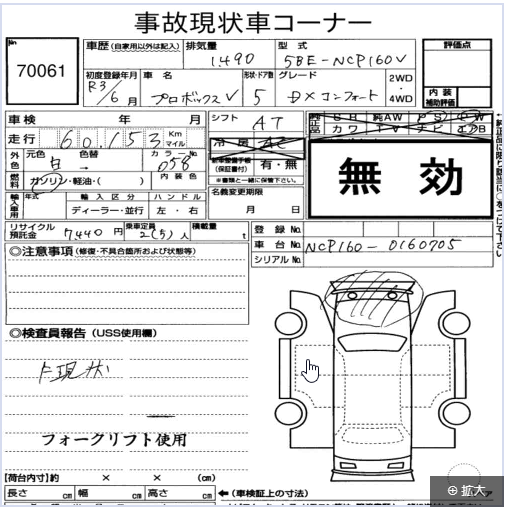 事故現状車コーナー
No. 70061
車歴 (自家用以外は記入) 排気量 1,490 型式 5BE-NCP160V 評価点
初度登録年月 R3/6月 車名 プロボックスV 形状・ドア数 5 グレード DXコンフォート 2WD・4WD 内装補助評価
車検 年 月 シフト AT 純正品 SR 純AW PS PW
走行 60,153 Km マイル 冷房 AC カワ TV ナビ エアB
外色 元色 白 色替 → カラーNo. 058 新車整備手帳(保証書付) 有・無
※書類と一緒に保管下さい。
無効
燃料 ガソリン・軽油・( ) 内装色 名義変更期限
輸入車用 年式 輸入区分 ハンドル 月 日
ディーラー・並行 左・右
リサイクル預託金 7440円 乗車定員 2(5)人 積載量 t 登録No.
車台No. NCP160-0160705
シリアルNo.
◎注意事項 (修復・不具合箇所および状態等)
◎検査員報告 (USS使用欄)
現状
フォークリフト使用
【荷台内寸】約 × × (cm)
長さ cm 幅 cm 高さ cm ←(車検証上の寸法)
⊕ 拡大